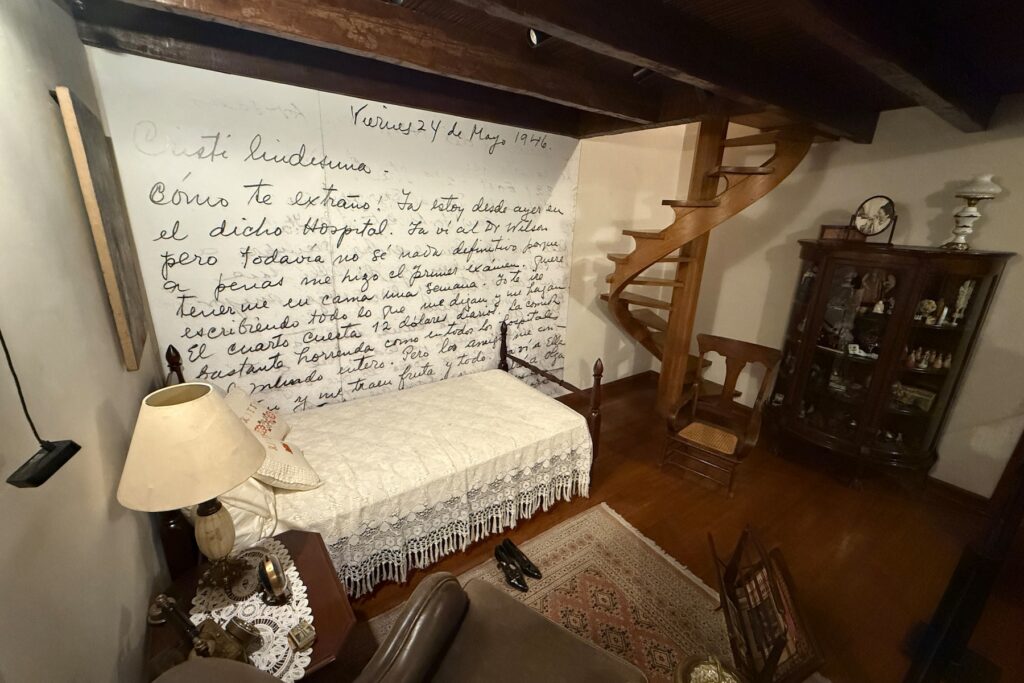 Viernes 24 de Mayo 1946.
Cristi lindísima.
Cómo te extraño! Ya estoy desde ayer en
el dicho Hospital. Ya vi al Dr Wilson
pero todavía no sé nada definitivo porque
a penas me hizo el primer exámen. Quiere
tenerme en cama una semana. Yo te iré
escribiendo todo lo que me digan y me hagan
El cuarto cuesta 12 dólares diarios. La comida
bastante horrenda como en todos los hospitales
mundo entero. Pero los
y me traen fruta y todo